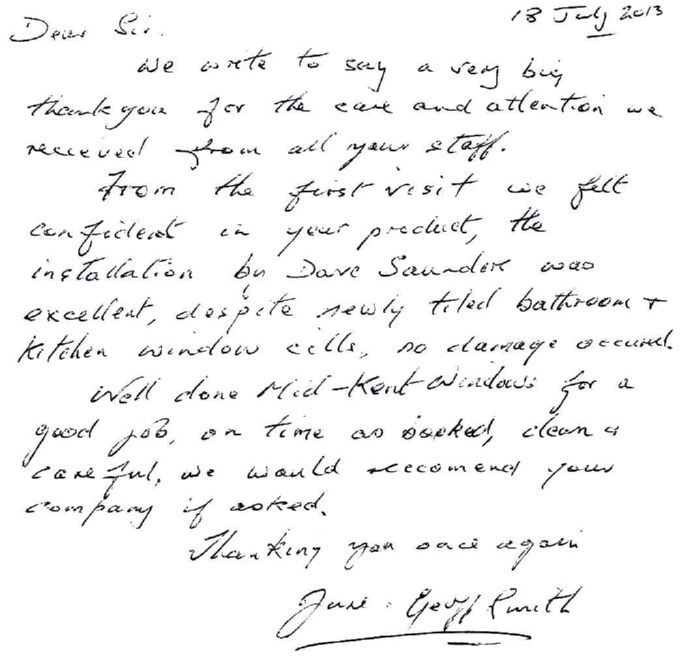 18 July 2013
Dear Sir.
We write to say a very big
thankyou for the care and attention we
received from all your staff.
From the first visit we felt
confident in your product, the
installation by Dave Saunders was
excellent, despite newly tiled bathroom +
kitchen window cills, no damage occured.
Well done Mid-Kent Windows for a
good job, on time as booked, clean &
careful, we would reccomend your
company if asked.
Thanking you once again
June + Geoff Smith